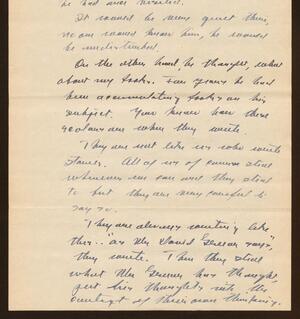 he had once
It would be very quiet there,
no one would know him, he would
be undisturbed.
On the other hand, he thought, what
about my books. For years he had
been accumulating books on his
subject. You know how these
scholars are when they write.
They are not like us who write
stories. All of us of course steal
whenever we can and they steal
to but they are very careful to
say so.
"They are always writing like
this." "as Mr. David says",
they write. Then they steal
what Mr. has thought,
put his thoughts into the
of their own thinking.